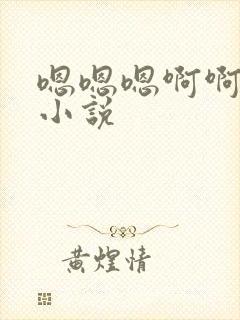 嗯嗯嗯啊啊
小说
黄煌情